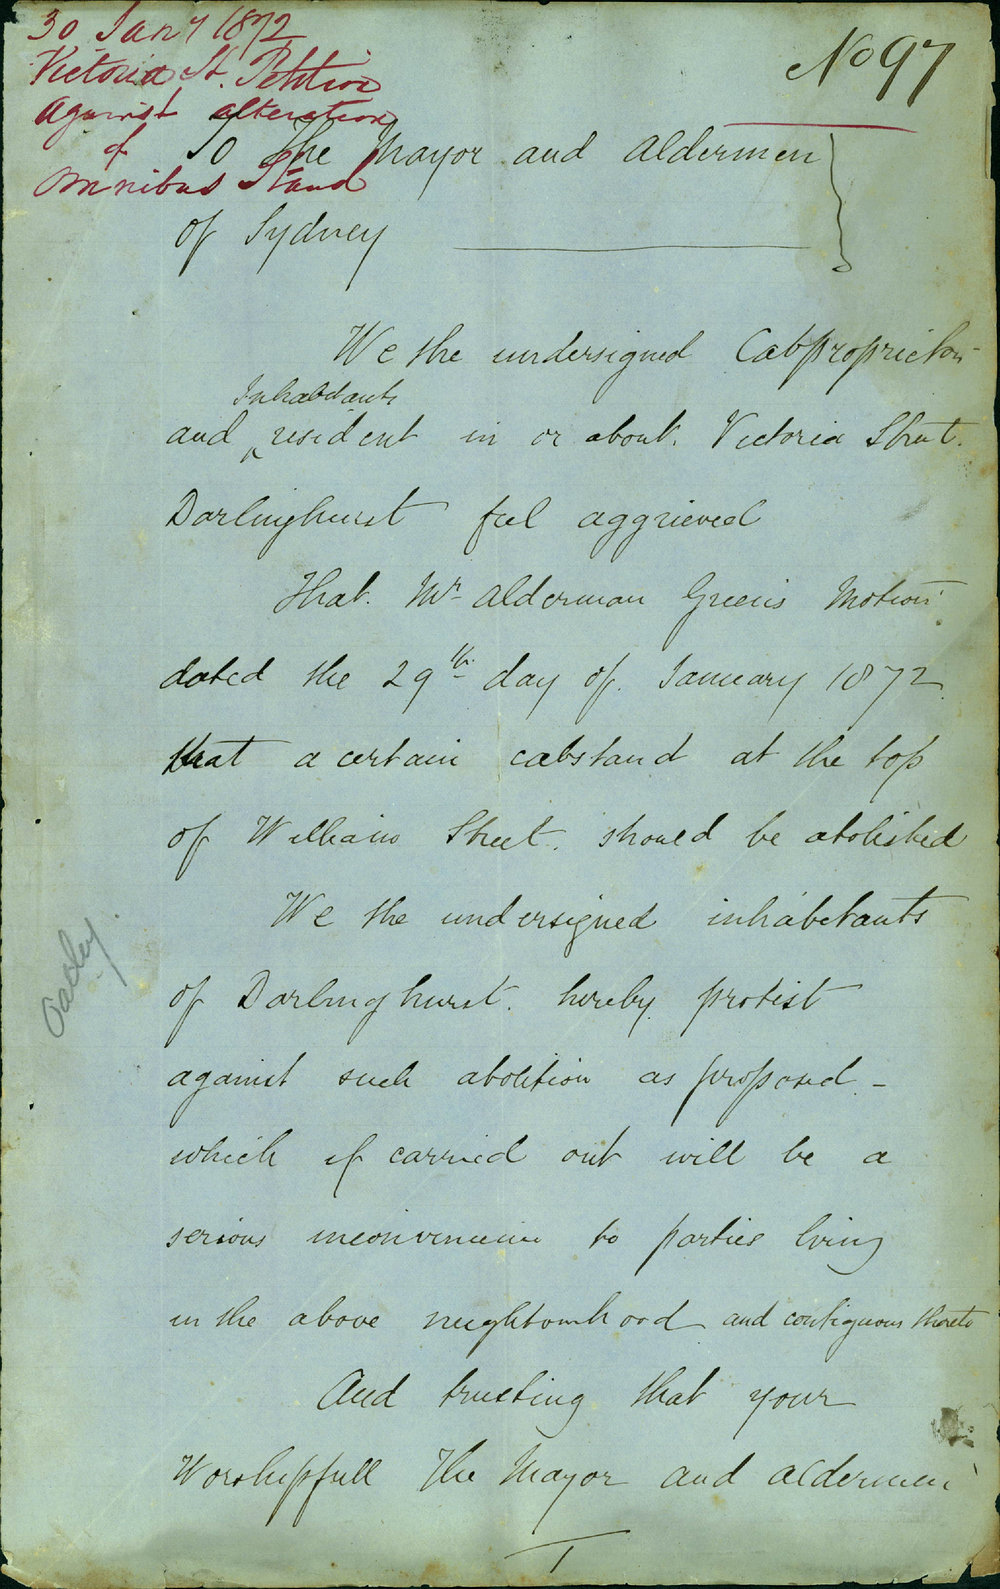 30 Jany 1872
Victoria St. Petition
against alteration
of
Omnibus Stand
No 97
To The Mayor and Aldermen
of Sydney
We the undersigned Cabproprietors
Inhabitants
and resident in or about. Victoria Street.
Darlinghurst feel aggrieved
That. Mr Alderman Green's Motion
dated the 29th day of. January 1872
that a certain cabstand at the top
of William Street. should be abolished
We the undersigned inhabetants
of Darlinghurst. hereby protest
against such abolition as proposed -
which if carried out will be a
serious inconvenience to parties living
in the above neighbourhood and contiguous thereto
And trusting that your
Worshipfull The Mayor and Aldermen